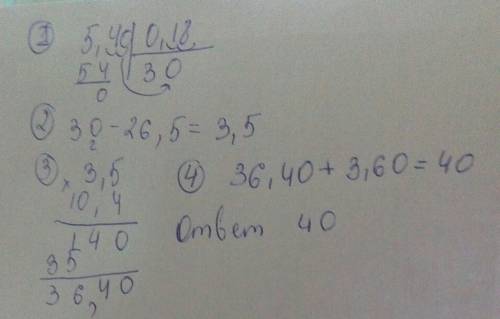 ① 5,40 | 0,18
54 | 30
0
② 30 - 26,5 = 3,5
③ × 3,5
10,4
140
35
36,40
④ 36,40 + 3,60 = 40
Ответ 40